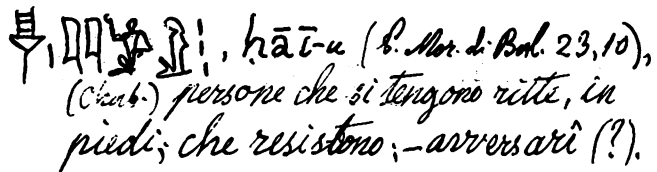 , ḥāī-u (P. Mor. di Boul. 23,10),
(Chab.) persone che si tengono ritte, in
piedi; che resistono; – avversarî (?).